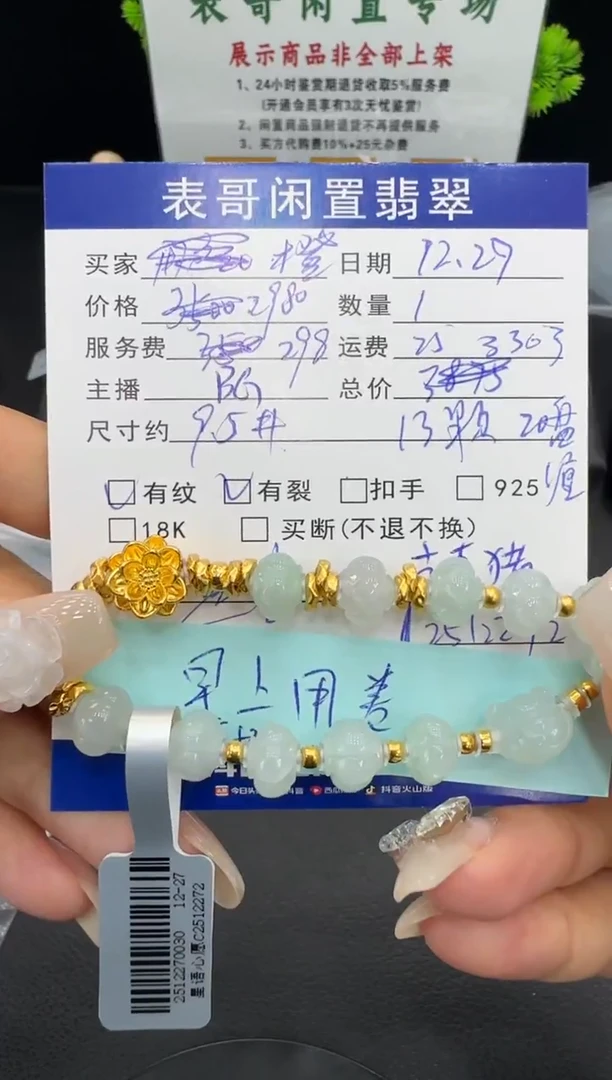 表哥闲置专场
展示商品非全部上架
1、24小时鉴赏期退货收取5%服务费
(开通会员享有3次无忧鉴赏)
2、闲置商品强制退货不再提供服务
3、买方代购费10%+25元杂费
表哥闲置翡翠
买家 橙 日期 12.29
价格 3500 2980 数量 1
服务费 350 298 运费 25 3303
主播 BG 总价 3875
尺寸约 9.5# 13颗
有纹 有裂 扣手 925
18K 买断(不退不换)
猪
早上用卷
抖音火山版
2512270030 12-27
星语心愿C2512272